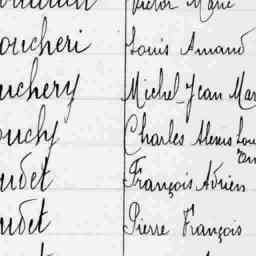 Victor Marie
oucheri Louis Amand
uchery Michel Jean Mar
ouchy Charles Alexis Lou
udet François Adrien
udet Pierre François